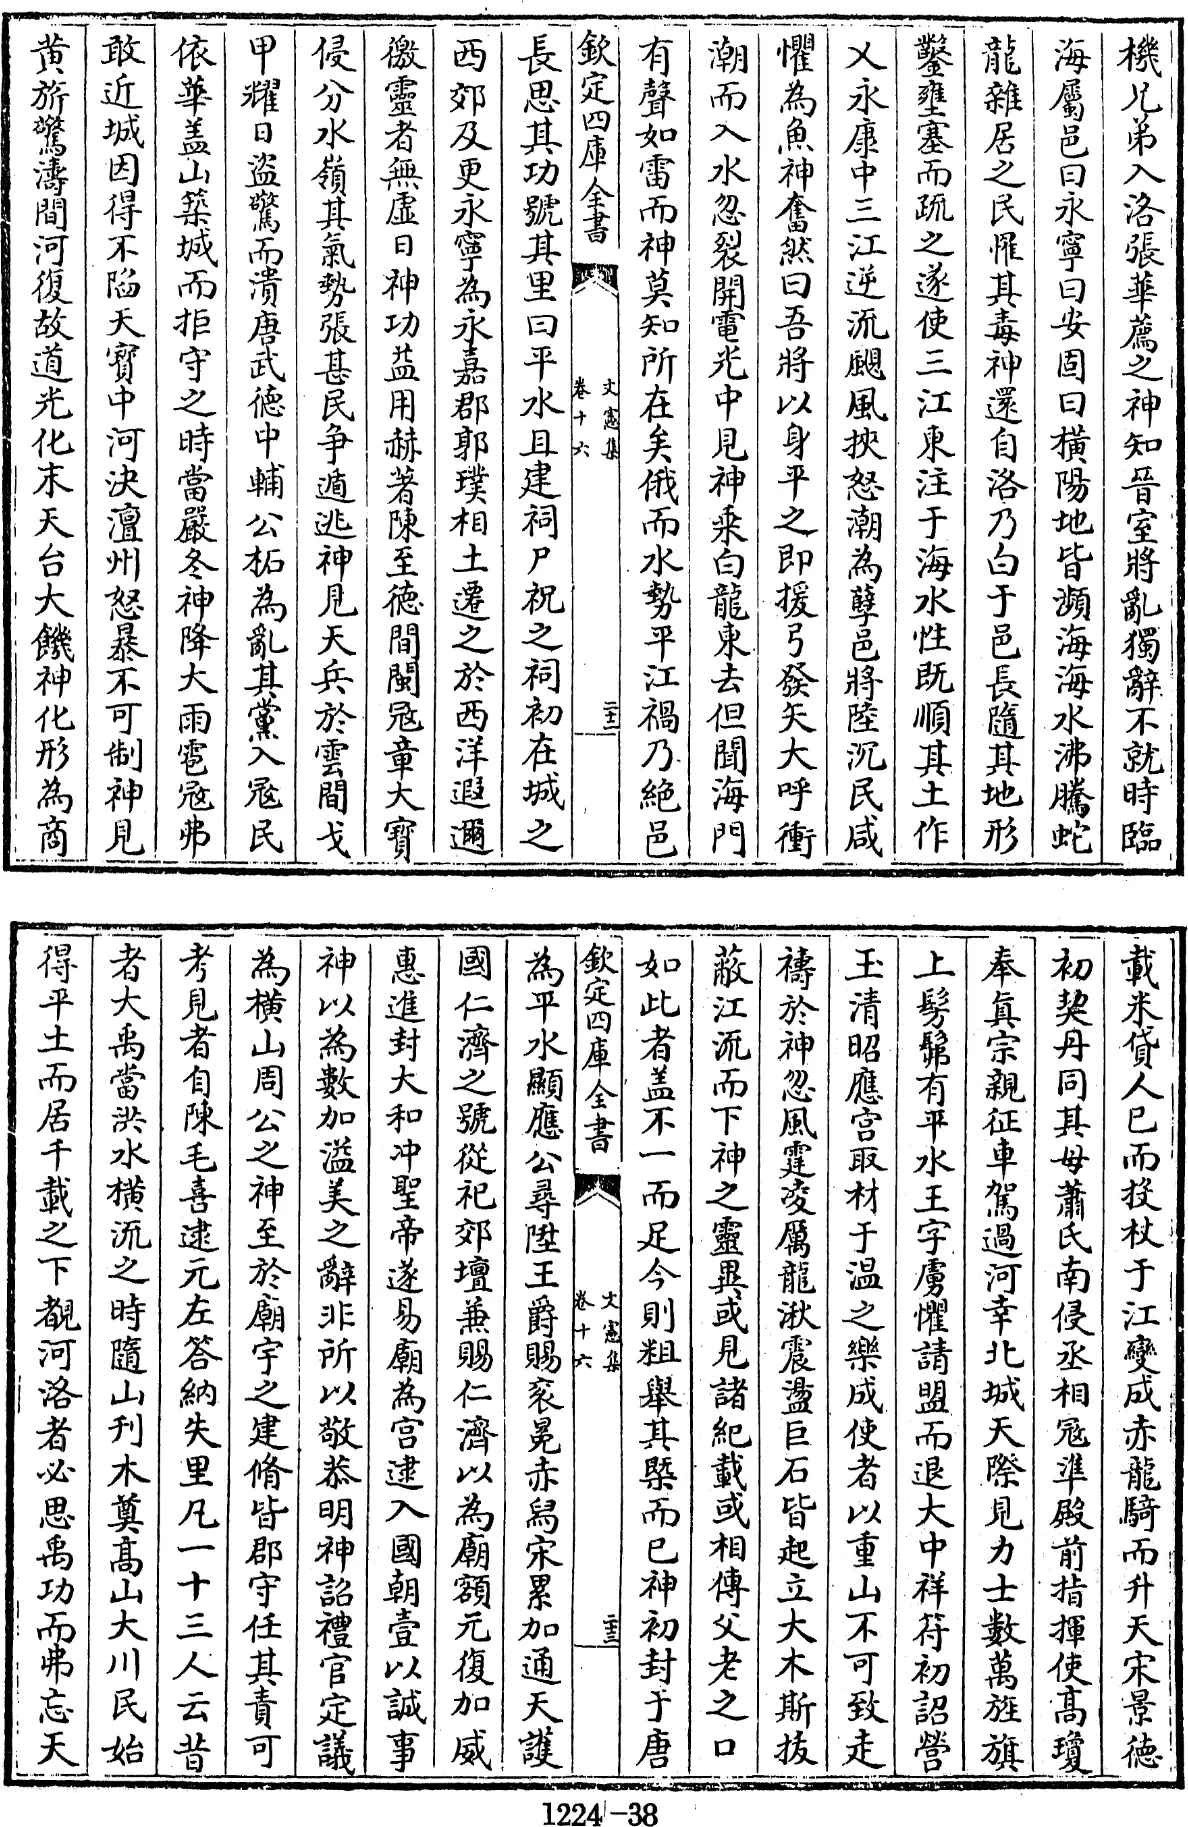 機兄弟入洛張華薦之神知晉室將亂獨辭不就時臨
海屬邑曰永寧曰安固曰橫陽地皆瀕海海水沸騰蛇
龍雜居之民懼其毒神還自洛乃白于邑長隨其地形
鑿壅塞而疏之遂使三江東注于海水性既順其土作
乂永康中三江逆流颶風挾怒潮為孽邑將陸沉民咸
懼為魚神奮然曰吾將以身平之即援弓發矢大呼衝
潮而入水忽裂開電光中見神乘白龍東去但聞海門
有聲如雷而神莫知所在矣俄而水勢平江禍乃絕邑
欽定四庫全書
文憲集
卷十六
二十二
長思其功號其里曰平水且建祠尸祝之祠初在城之
西郊及更永寧為永嘉郡郭璞相土遷之於西洋遐邇
徼靈者無虛日神功益用赫著陳至德間閩寇章大寳
侵分水嶺其氣勢張甚民争遁逃神見天兵於雲間戈
甲耀日盜驚而潰唐武德中輔公柘為亂其黨入寇民
依華盖山築城而拒守之時當嚴冬神降大雨雹寇弗
敢近城因得不陷天寳中河決澶州怒暴不可制神見
黄旂驚濤間河復故道光化末天台大饑神化形為商
載米貸人已而投杖于江變成赤龍騎而升天宋景德
初契丹同其母蕭氏南侵丞相寇準殿前指揮使髙瓊
奉真宗親征車駕過河幸北城天際見力士數萬旌旗
上髣髴有平水王字虜懼請盟而退大中祥符初詔營
玉清昭應宫取材于温之樂成使者以重山不可致走
禱於神忽風霆凌厲龍湫震盪巨石皆起立大木斯拔
蔽江流而下神之靈異或見諸紀載或相傳父老之口
如此者盖不一而足今則粗舉其槩而已神初封于唐
欽定四庫全書
文憲集
卷十六
二十三
為平水顯應公尋陞王爵賜衮冕赤舄宋累加通天護
國仁濟之號從祀郊壇兼賜仁濟以為廟額元復加威
惠進封大和冲聖帝遂易廟為宫逮入國朝壹以誠事
神以為數加溢美之辭非所以敬恭明神詔禮官定議
為橫山周公之神至於廟宇之建脩皆郡守任其責可
考見者自陳毛喜逮元左答納失里凡一十三人云昔
者大禹當洪水橫流之時隨山刋木奠髙山大川民始
得平土而居千載之下覩河洛者必思禹功而弗忘天
1224-38